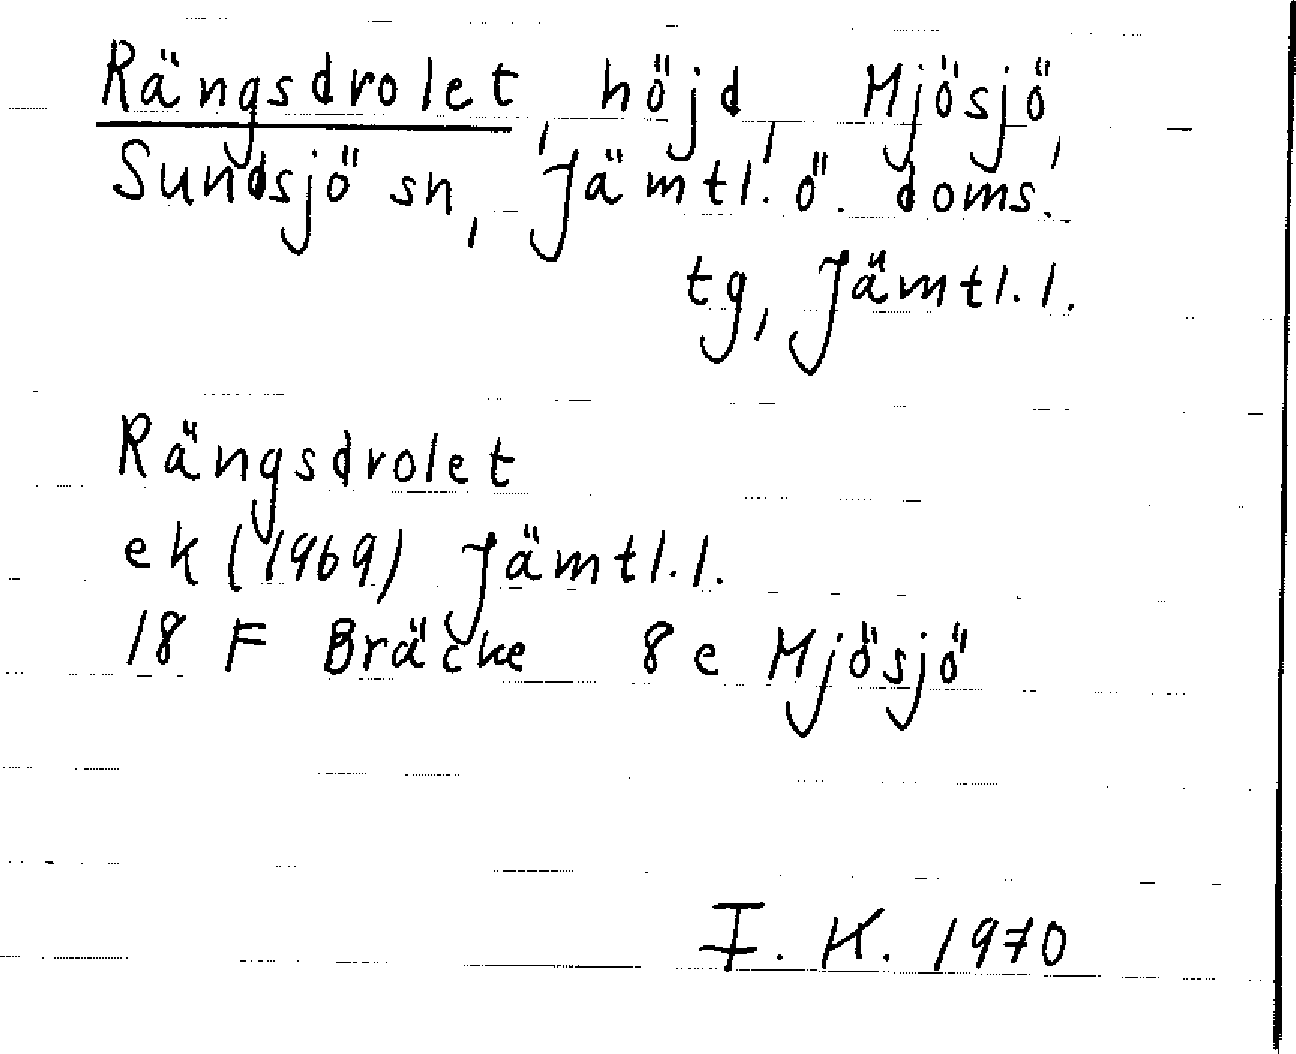 Rängsdrolet, höjd, Mjösjö,
Sundsjö sn, Jämtl. ö. doms.
tg, Jämtl. l.
Rängsdrolet
ek (1969) Jämtl. l.
18 F Bräcke 8 e Mjösjö
I. K. 1970